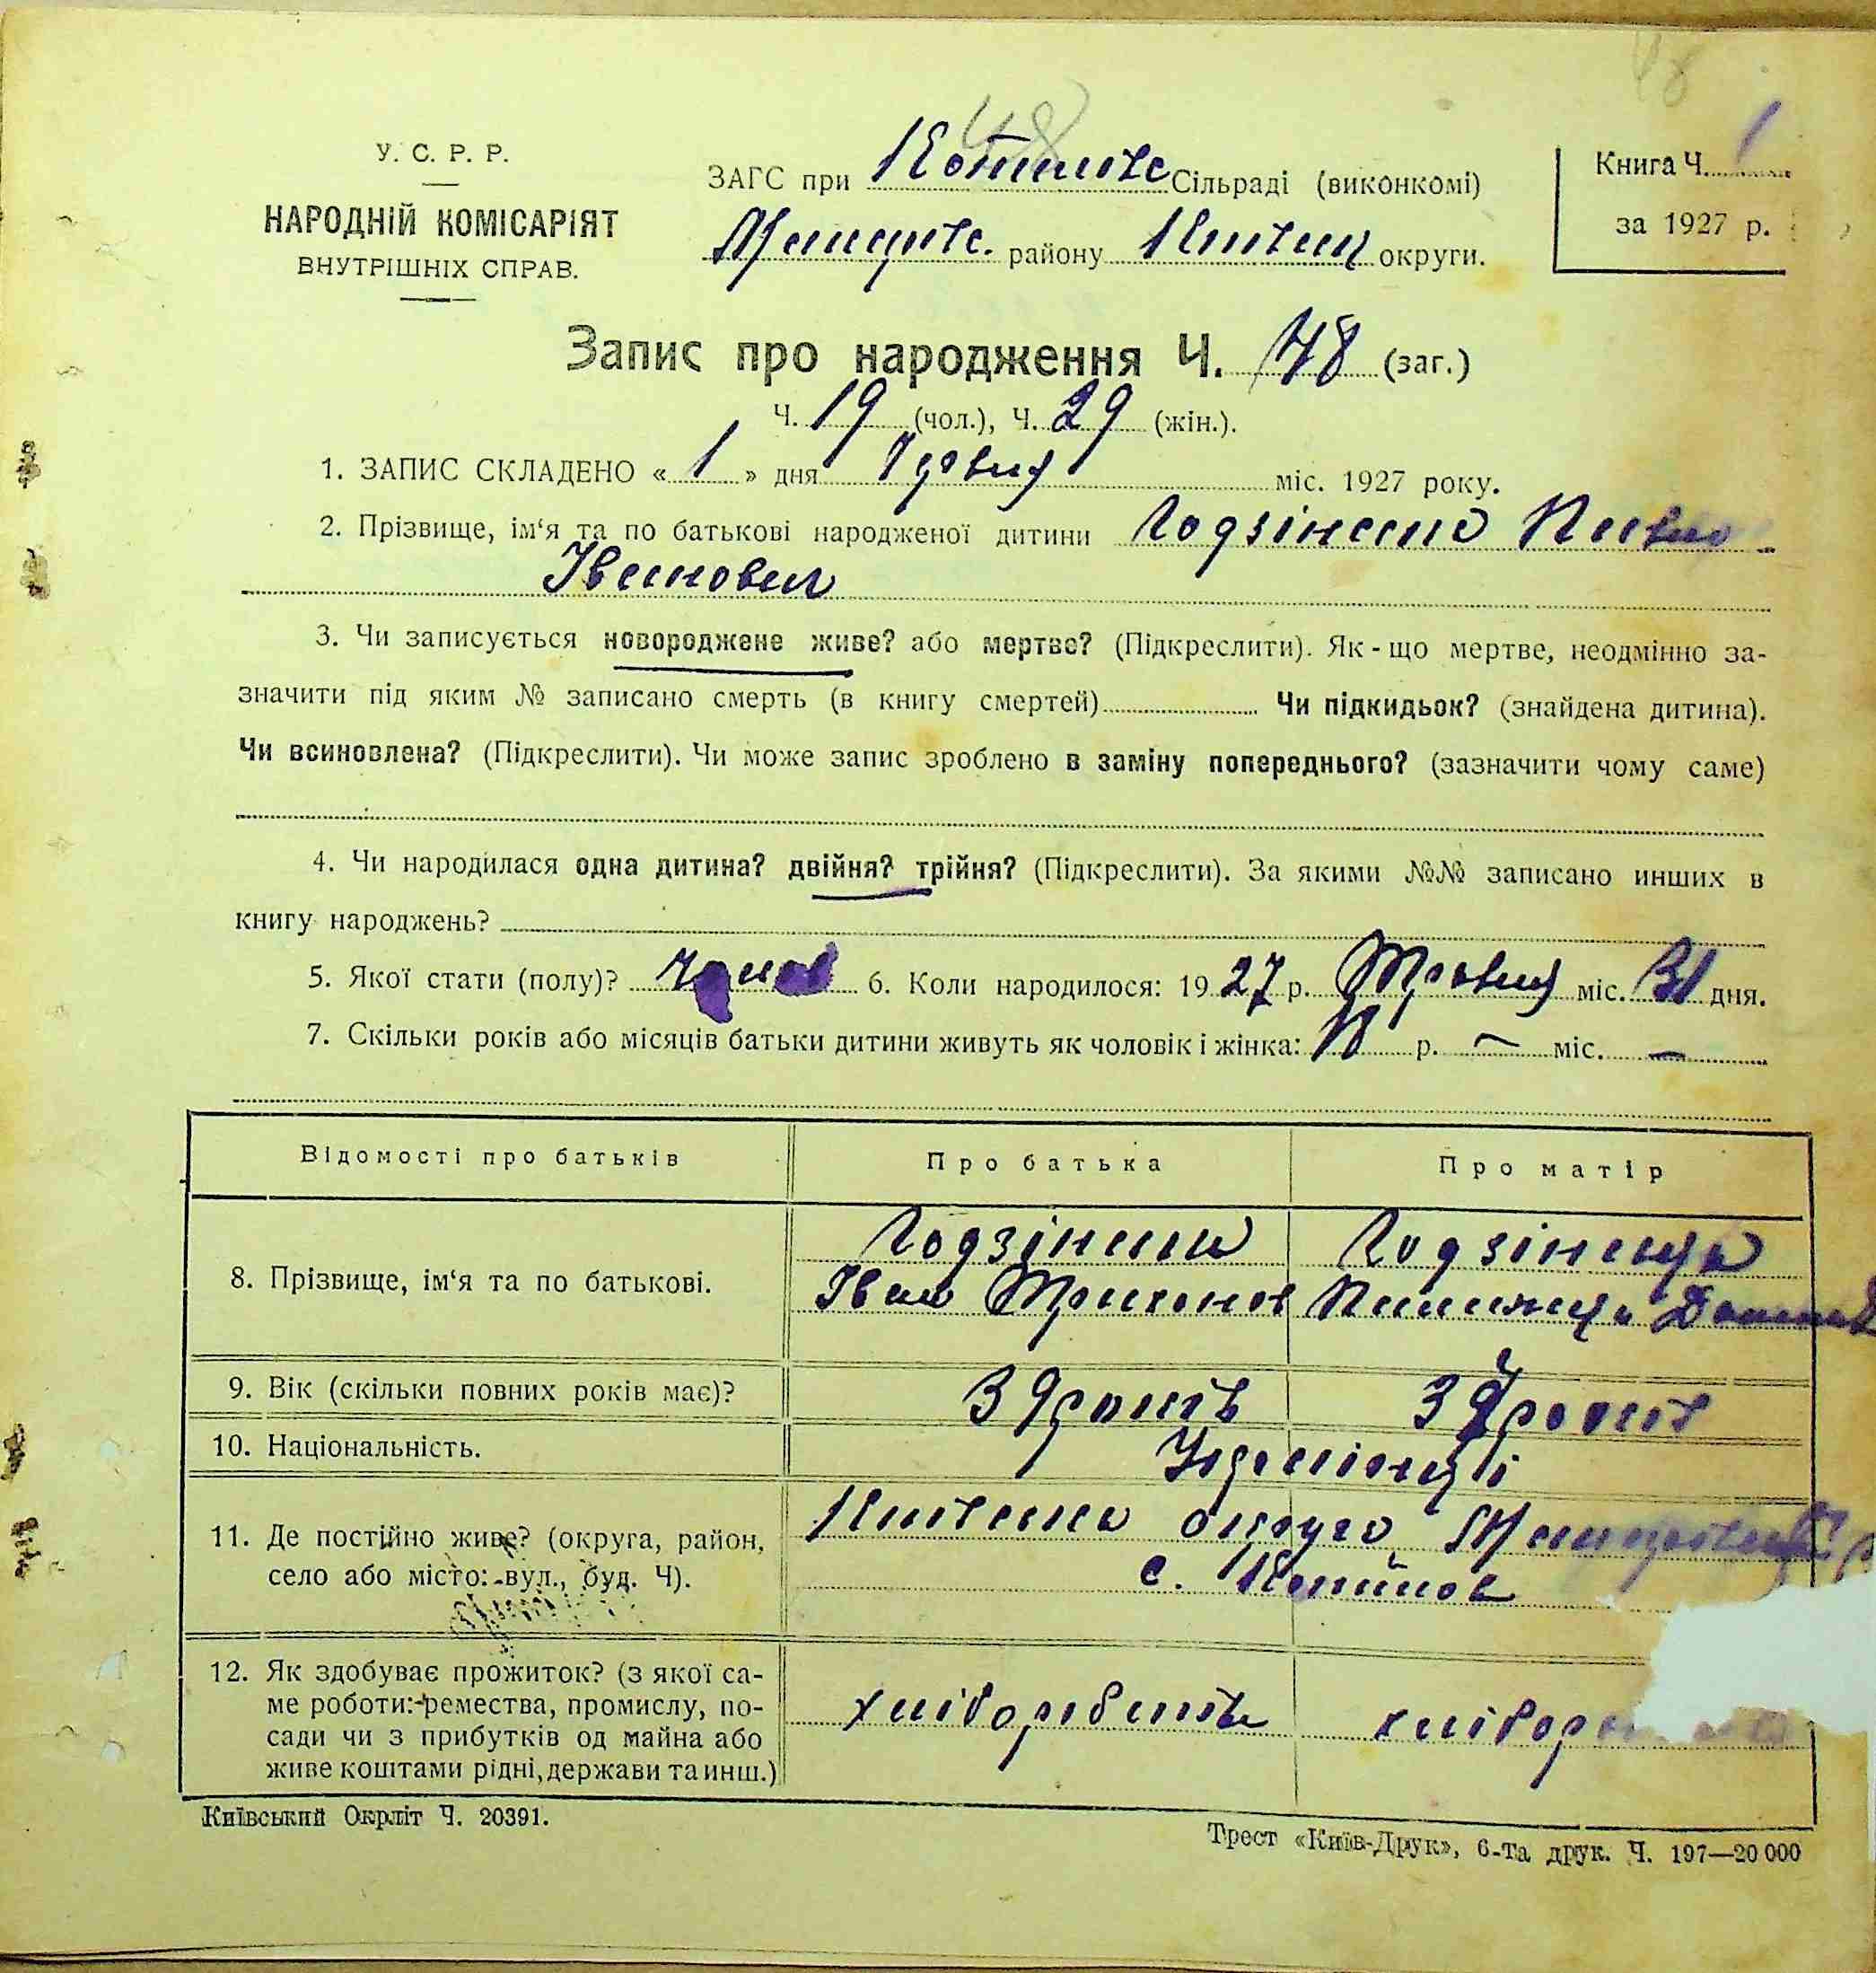 48
48
У. С. Р. Р.
НАРОДНІЙ КОМІСАРІЯТ
ВНУТРІШНІХ СПРАВ.
ЗАГС при Копилівс Сільраді (виконкомі)
району Київськ округи.
Книга Ч. 1
за 1927 р.
Запис про народження Ч. 48 (заг.)
Ч. 19 (чол.), Ч. 29 (жін.).
1. ЗАПИС СКЛАДЕНО « 1 » дня Червня міс. 1927 року.
2. Прізвище, ім‘я та по батькові народженої дитини Годзінський
Іванович
3. Чи записується новороджене живе? або мертве? (Підкреслити). Як-що мертве, неодмінно за-
значити під яким № записано смерть (в книгу смертей) Чи підкидьок? (знайдена дитина).
Чи всиновлена? (Підкреслити). Чи може запис зроблено в заміну попереднього? (зазначити чому саме)
4. Чи народилася одна дитина? двійня? трійня? (Підкреслити). За якими №№ записано инших в
книгу народжень?
5. Якої стати (полу)? 6. Коли народилося: 1927 р. Травня міс. 31 дня.
7. Скільки років або місяців батьки дитини живуть як чоловік і жінка: 18 р. — міс. —
Відомості про батьків Про батька Про матір
8. Прізвище, ім‘я та по батькові.
Іван
9. Вік (скільки повних років має)? 39 років років
10. Національність. Українці
11. Де постійно живе? (округа, район, Київська округа
село або місто: вул., буд. Ч). с. Копилов
12. Як здобуває прожиток? (з якої са-
ме роботи: ремества, промислу, по- хліборобство
сади чи з прибутків од майна або
живе коштами рідні, держави та инш.)
Київський Окрліт Ч. 20391.
Трест «Київ-Друк», 6-та друк. Ч. 197—20 000